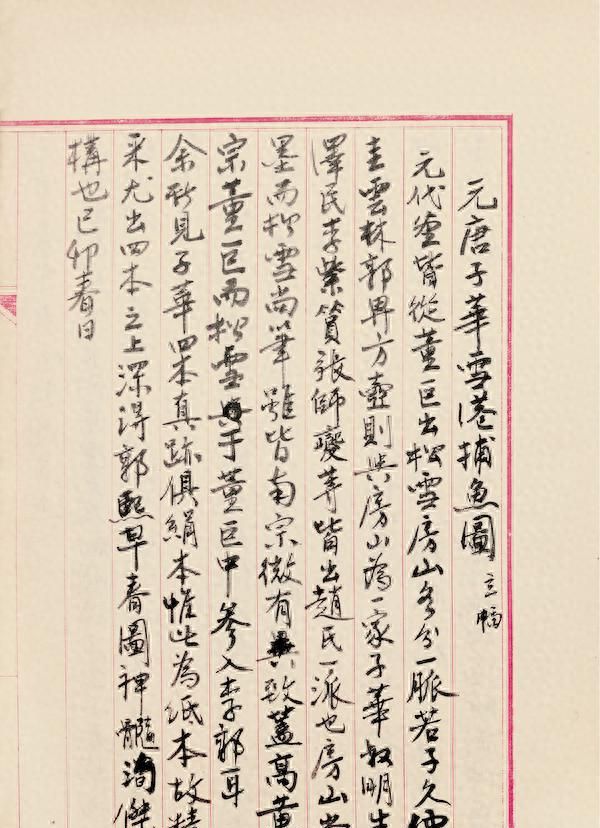 元唐子華雪港捕魚圖 立幅
元代畫皆從董巨出松雪房山各分一脈若子久仲
圭雲林郭畀方壺則與房山為一家子華叔明朱
澤民李紫篔張師夔等皆出趙氏一派也房山尚
墨而松雪尚筆雖皆南宗微有異致蓋高黃
宗董巨而松雪與于董巨中參入李郭耳
余所見子華四本真跡俱絹本惟此為紙本故精
采尤出四本之上深得郭熙早春圖神髓洵傑
構也己卯春日